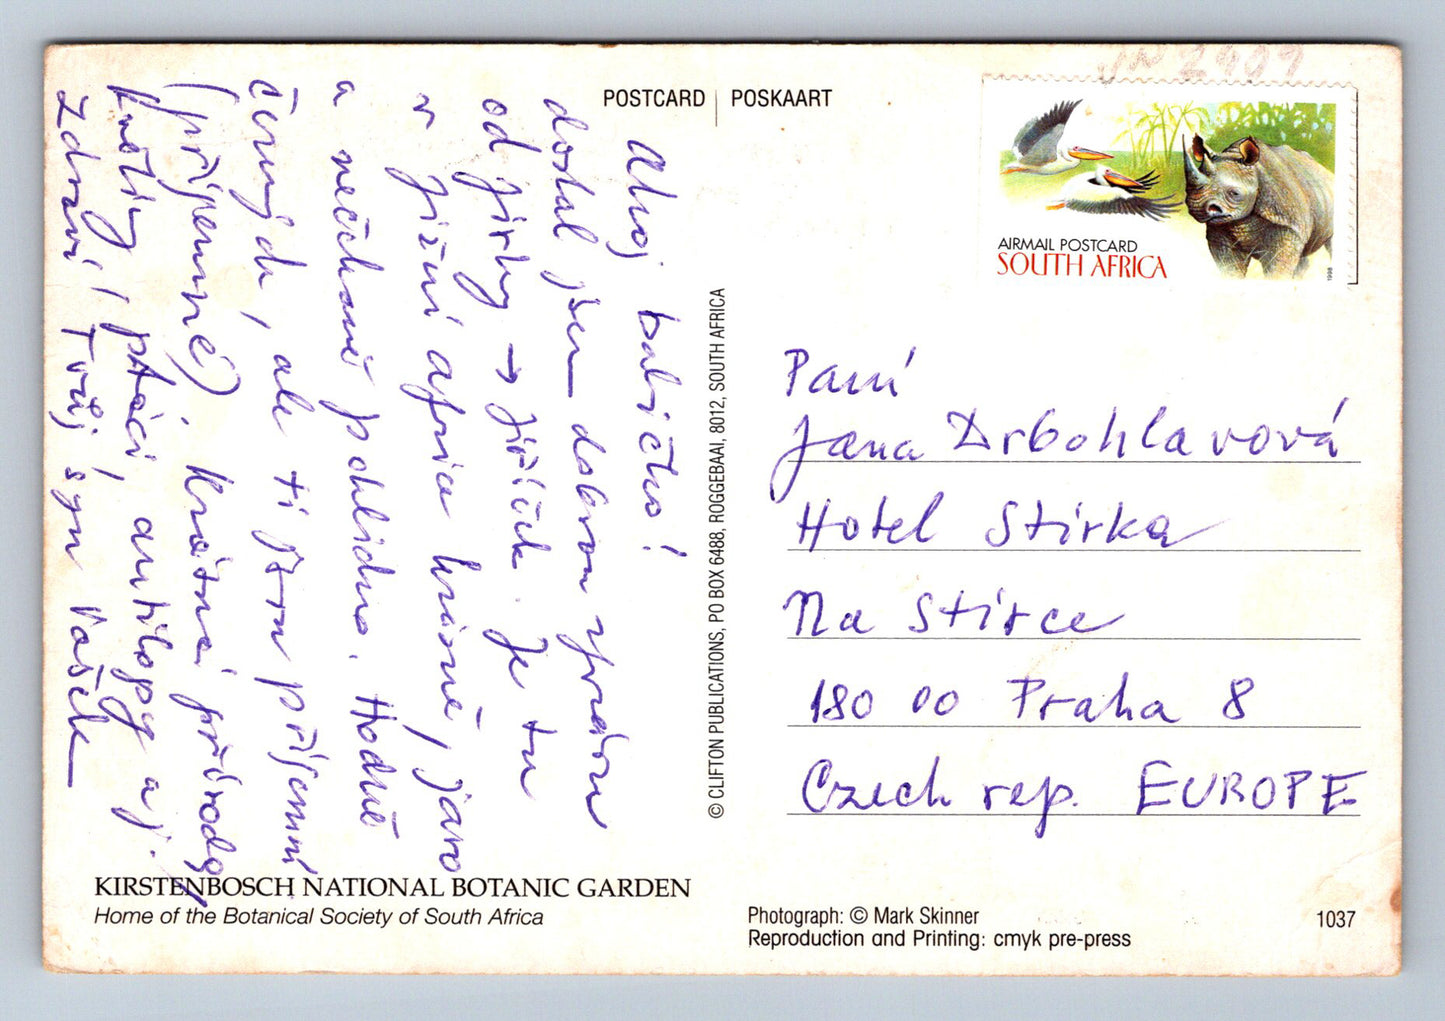 POSTCARD | POSKAART
AIRMAIL POSTCARD
SOUTH AFRICA
1998
Ahoj babičko!
dostal jsem dobrou zprávu
od Jirky → Jiříček. Je tu
v Jižní Africe krásně, jaro
a nečekaně pohlidno. Hodně
černejch, ale ti jsou příjemní
(příjemné). Krásná příroda
květiny, ptáci, antilopy aj.
zdraví Tvůj syn Vašek
© CLIFTON PUBLICATIONS, PO BOX 6488, ROGGEBAAI, 8012, SOUTH AFRICA
Paní
Jana Drbohlavová
Hotel Stírka
Na Stírce
180 00 Praha 8
Czech rep. EUROPE
KIRSTENBOSCH NATIONAL BOTANIC GARDEN
Home of the Botanical Society of South Africa
Photograph: © Mark Skinner
Reproduction and Printing: cmyk pre-press
1037